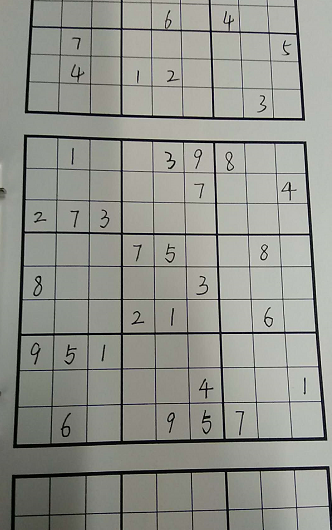 6 4
7 5
4 1 2
3
1 3 9 8
7 4
2 7 3
7 5 8
8 3
2 1 6
9 5 1
4 1
6 9 5 7